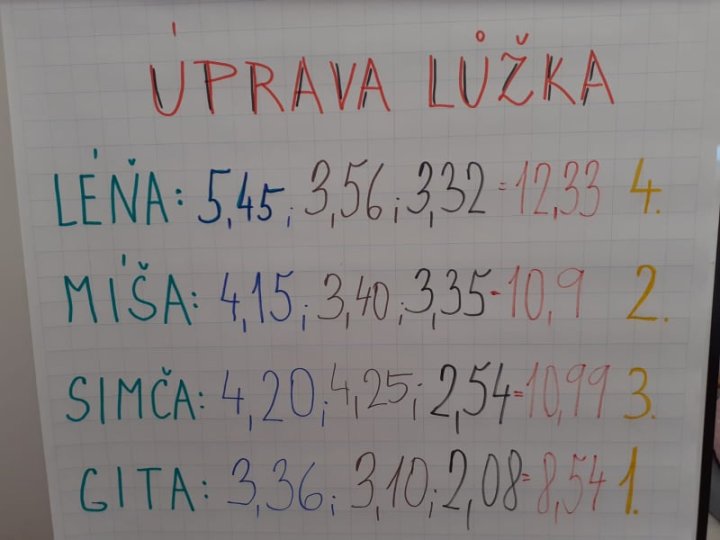 ÚPRAVA LŮŽKA
LÉŇA: 5,45; 3,56; 3,32 = 12,33 4.
MÍŠA: 4,15; 3,40; 3,35 = 10,9 2.
SIMČA: 4,20; 4,25; 2,54 = 10,99 3.
GITA: 3,36; 3,10; 2,08 = 8,54 1.